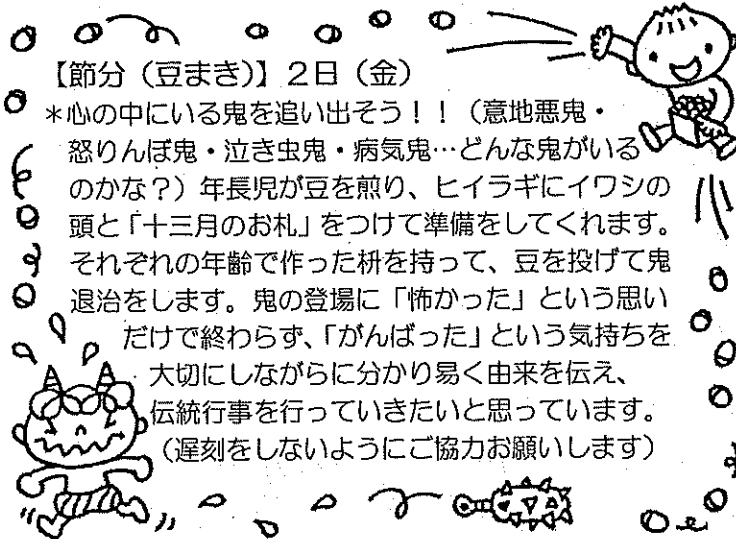 【節分（豆まき）】２日（金）
＊心の中にいる鬼を追い出そう！！（意地悪鬼・
怒りんぼ鬼・泣き虫鬼・病気鬼…どんな鬼がいる
のかな？）年長児が豆を煎り、ヒイラギにイワシの
頭と「十三月のお札」をつけて準備をしてくれます。
それぞれの年齢で作った枡を持って、豆を投げて鬼
退治をします。鬼の登場に「怖かった」という思い
だけで終わらず、「がんばった」という気持ちを
大切にしながらに分かり易く由来を伝え、
伝統行事を行っていきたいと思っています。
（遅刻をしないようにご協力お願いします）